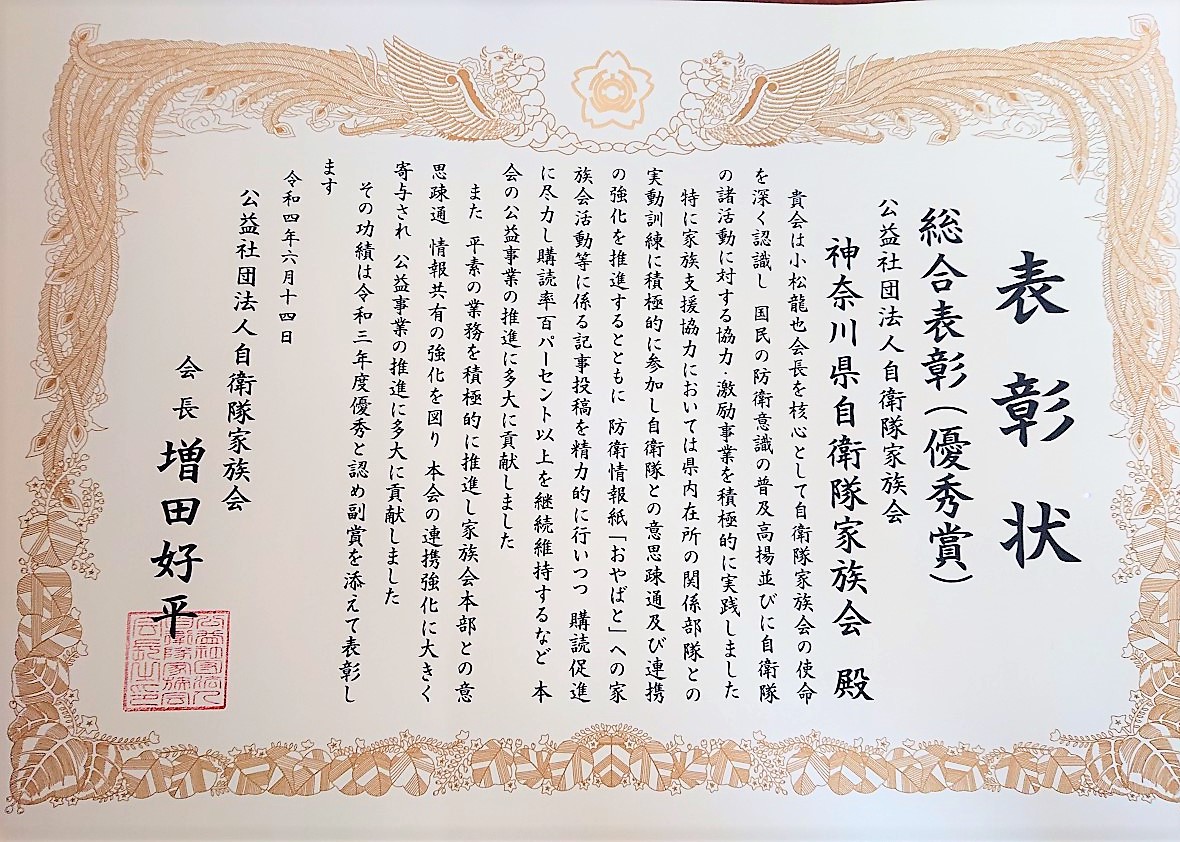 表彰状
総合表彰（優秀賞）
公益社団法人自衛隊家族会
神奈川県自衛隊家族会 殿
貴会は小松龍也会長を核心として自衛隊家族会の使命
を深く認識し 国民の防衛意識の普及高揚並びに自衛隊
の諸活動に対する協力・激励事業を積極的に実践しました
特に家族支援協力においては県内在所の関係部隊との
実動訓練に積極的に参加し自衛隊との意思疎通及び連携
の強化を推進するとともに 防衛情報紙「おやばと」への家
族会活動等に係る記事投稿を精力的に行いつつ 購読促進
に尽力し購読率百パーセント以上を継続維持するなど 本
会の公益事業の推進に多大に貢献しました
また 平素の業務を積極的に推進し家族会本部との意
思疎通 情報共有の強化を図り 本会の連携強化に大きく
寄与され 公益事業の推進に多大に貢献しました
その功績は令和三年度優秀と認め副賞を添えて表彰し
ます
令和四年六月十四日
公益社団法人自衛隊家族会
会長 増田好平
公益社団法人
自衛隊家族会
会長之印